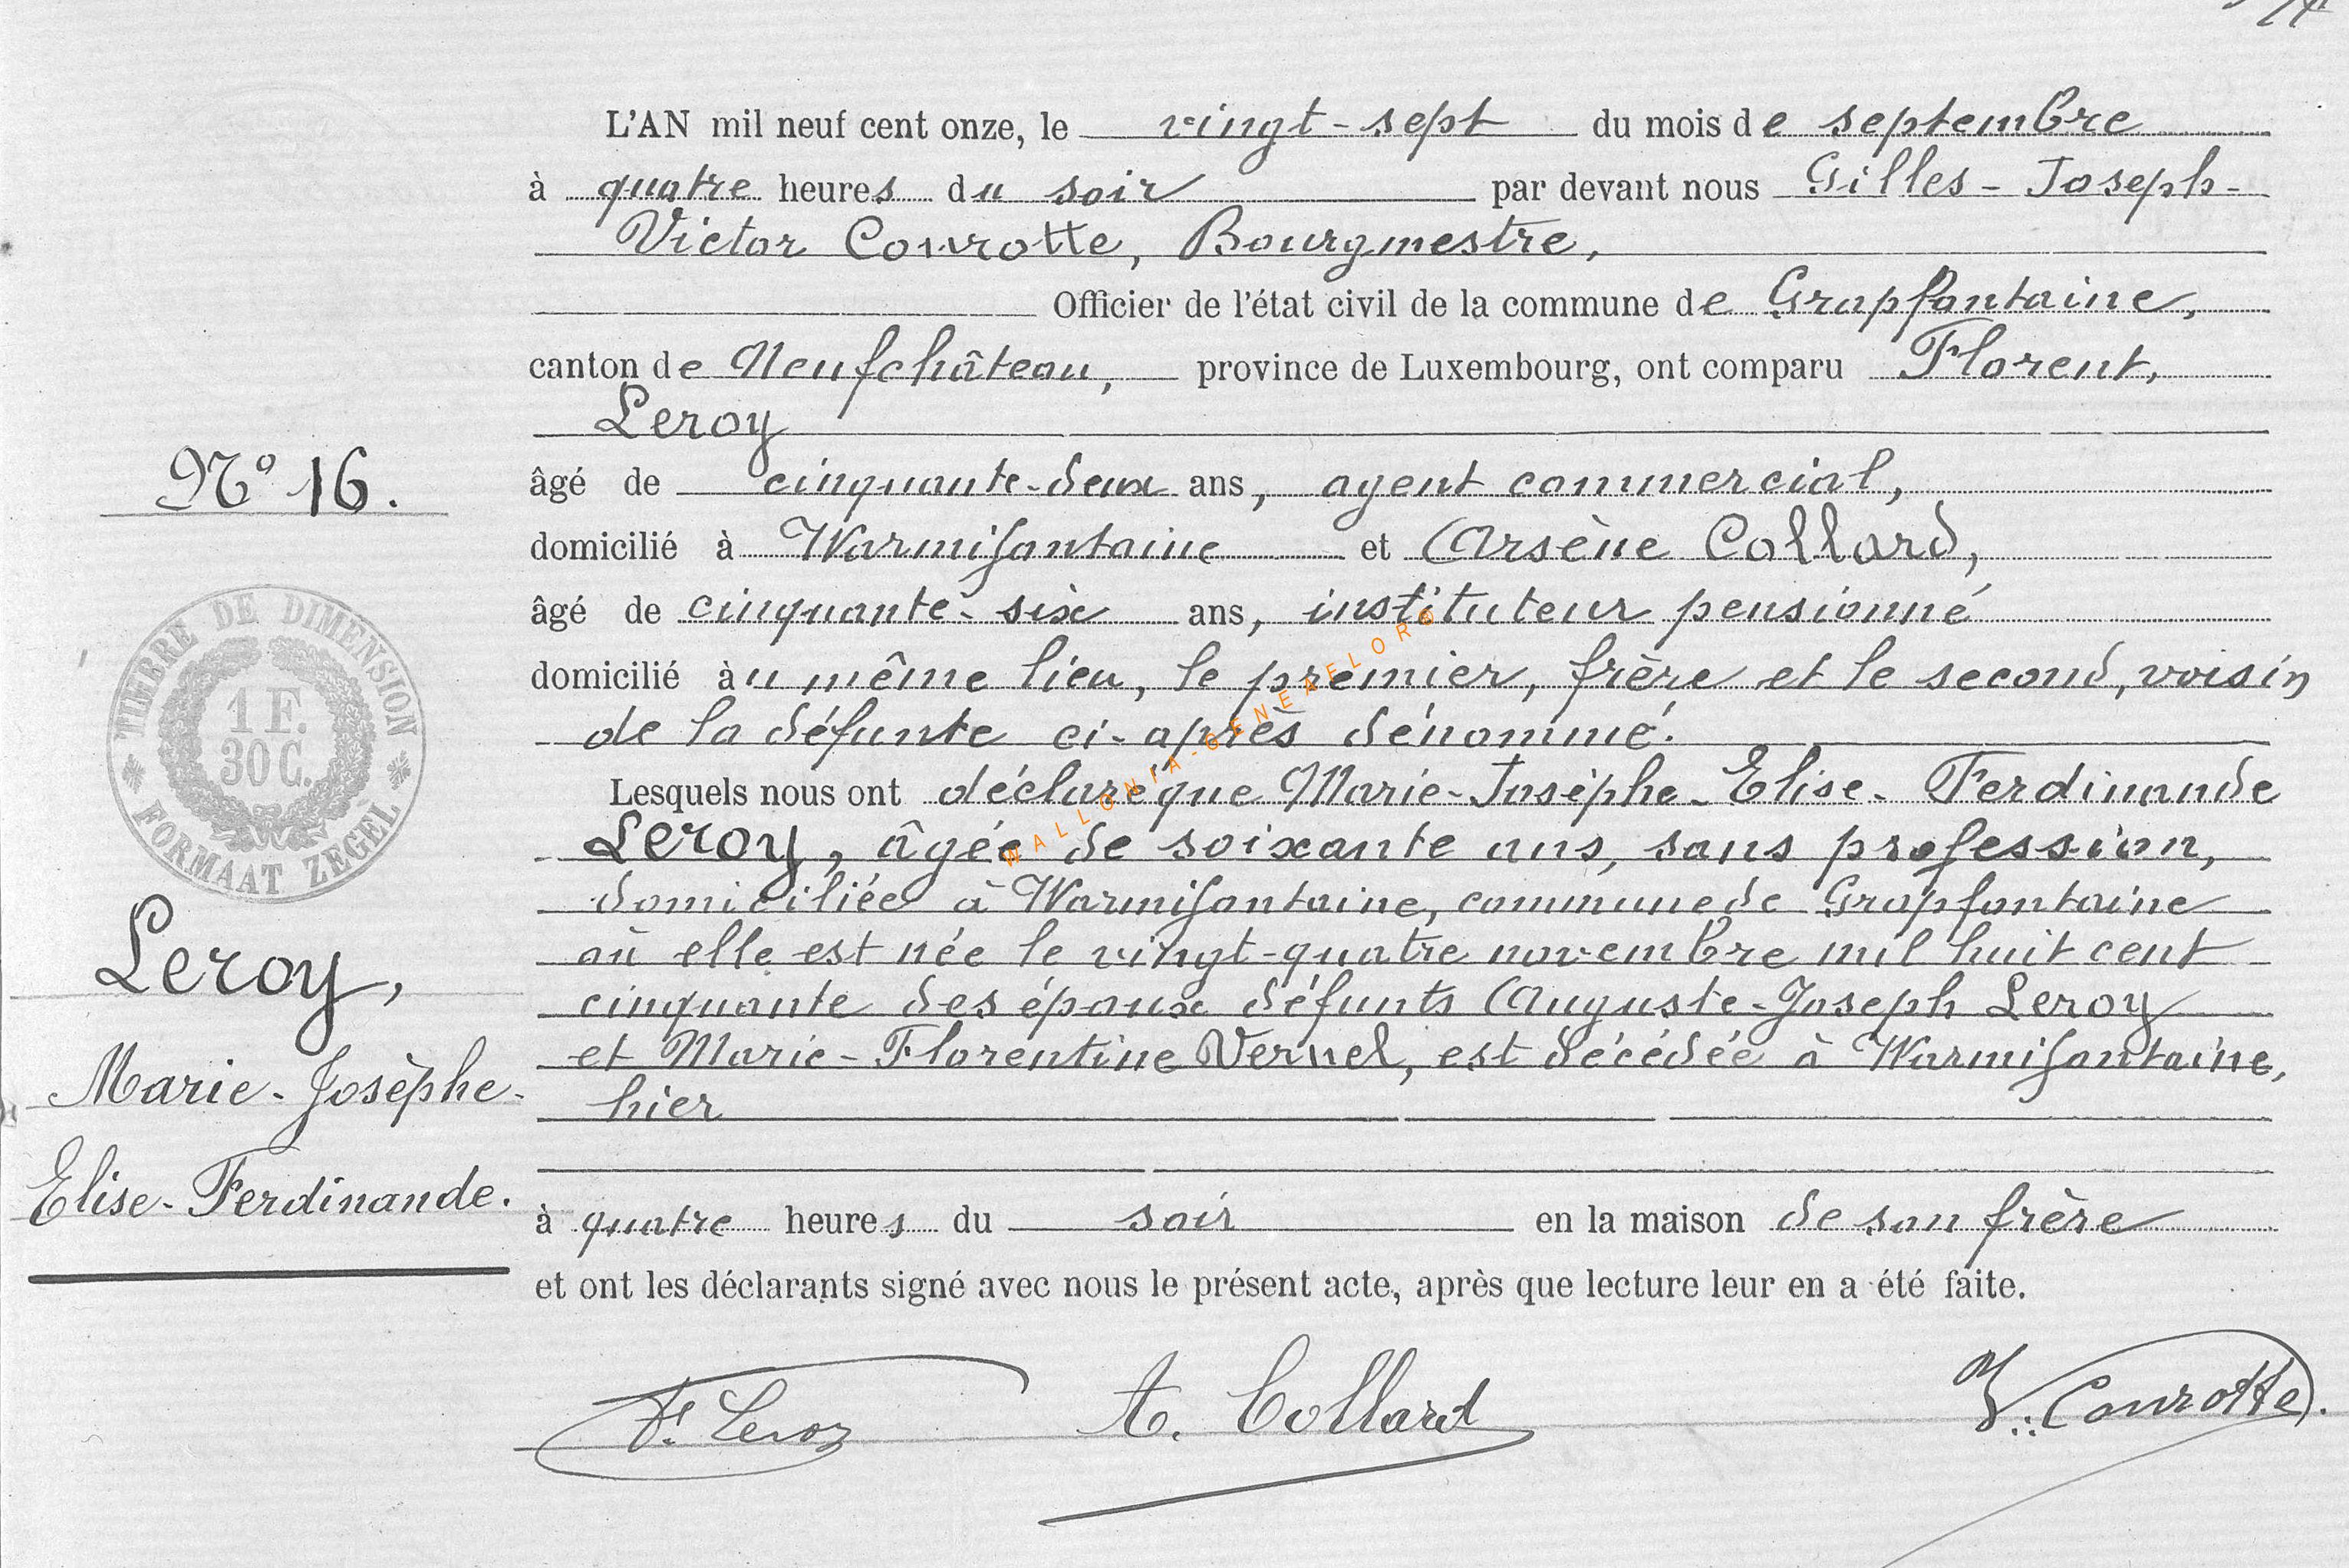 L'AN mil neuf cent onze, le vingt-sept du mois de septembre
à quatre heures du soir par devant nous Gilles-Joseph-
Victor Courotte, Bourgmestre,
Officier de l'état civil de la commune de Grapfontaine,
canton de Neufchâteau, province de Luxembourg, ont comparu Florent,
Leroy
âgé de cinquante-deux ans, agent commercial,
domicilié à Warmifontaine et Arsène Collard,
âgé de cinquante-six ans, instituteur pensionné
domicilié au même lieu, le premier, frère et le second, voisin
de la défunte ci-après dénommé.
Lesquels nous ont déclaré que Marie-Josèphe-Elise-Ferdinande
Leroy, âgée de soixante ans, sans profession,
domiciliée à Warmifontaine, commune de Grapfontaine
où elle est née le vingt-quatre novembre mil huit cent
cinquante des époux défunts Auguste-Joseph Leroy
et Marie-Florentine Vernel, est décédée à Warmifontaine,
hier
à quatre heures du soir en la maison de son frère
et ont les déclarants signé avec nous le présent acte, après que lecture leur en a été faite.
F. Leroy A. Collard V. Courotte.
N° 16.
TIMBRE DE DIMENSION
1 F.
30 C.
FORMAAT ZEGEL
Leroy,
Marie-Josèphe-
Elise-Ferdinande.
WALLONIA-GENEAFLORE